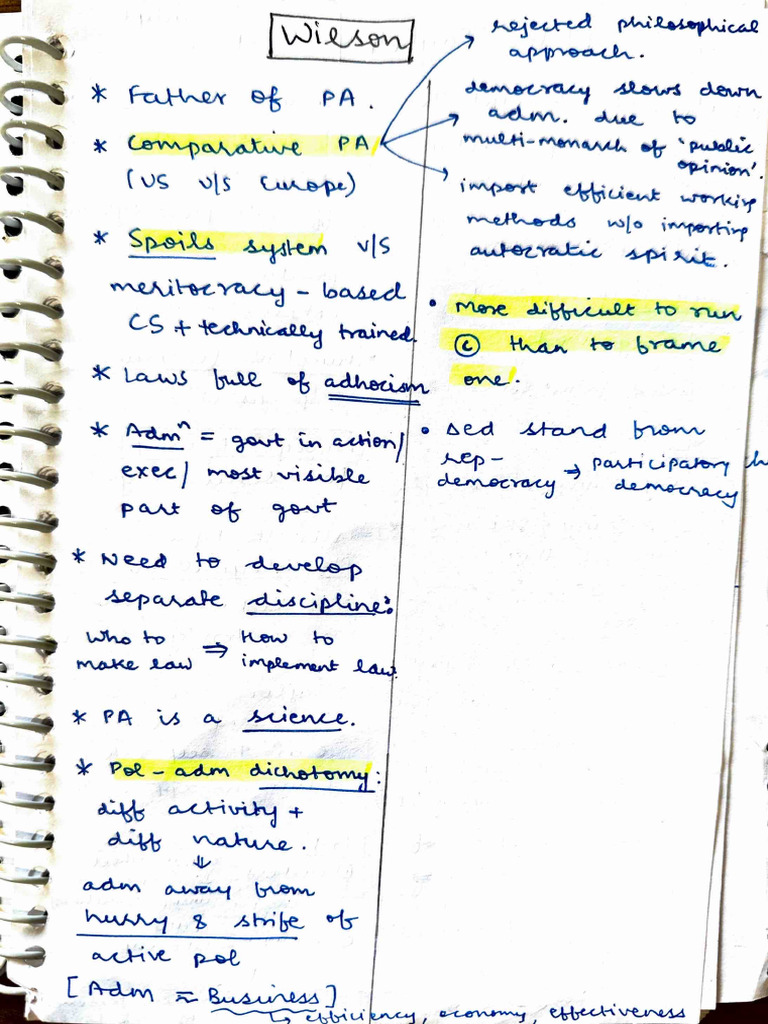 Wilson
* Father of PA.
* Comparative PA
(US v/s Europe)
* Spoils system v/s
meritocracy - based
CS + technically trained
* Laws full of adhocism
* Admⁿ = govt in action/
exec/ most visible
part of govt
* Need to develop
separate discipline:
Who to ⇒ How to
make law implement law
* PA is a science.
* Pol - adm dichotomy:
diff activity +
diff nature.
⇓
adm away from
hurry & strife of
active pol
[Adm ≈ Business]
↳ efficiency, economy, effectiveness
rejected philosophical
approach.
democracy slows down
adm. due to
multi-monarch of 'public
opinion'.
import efficient working
methods w/o importing
autocratic spirit.
• More difficult to run
© than to frame
one.
• stand from
rep- → participatory
democracy democracy